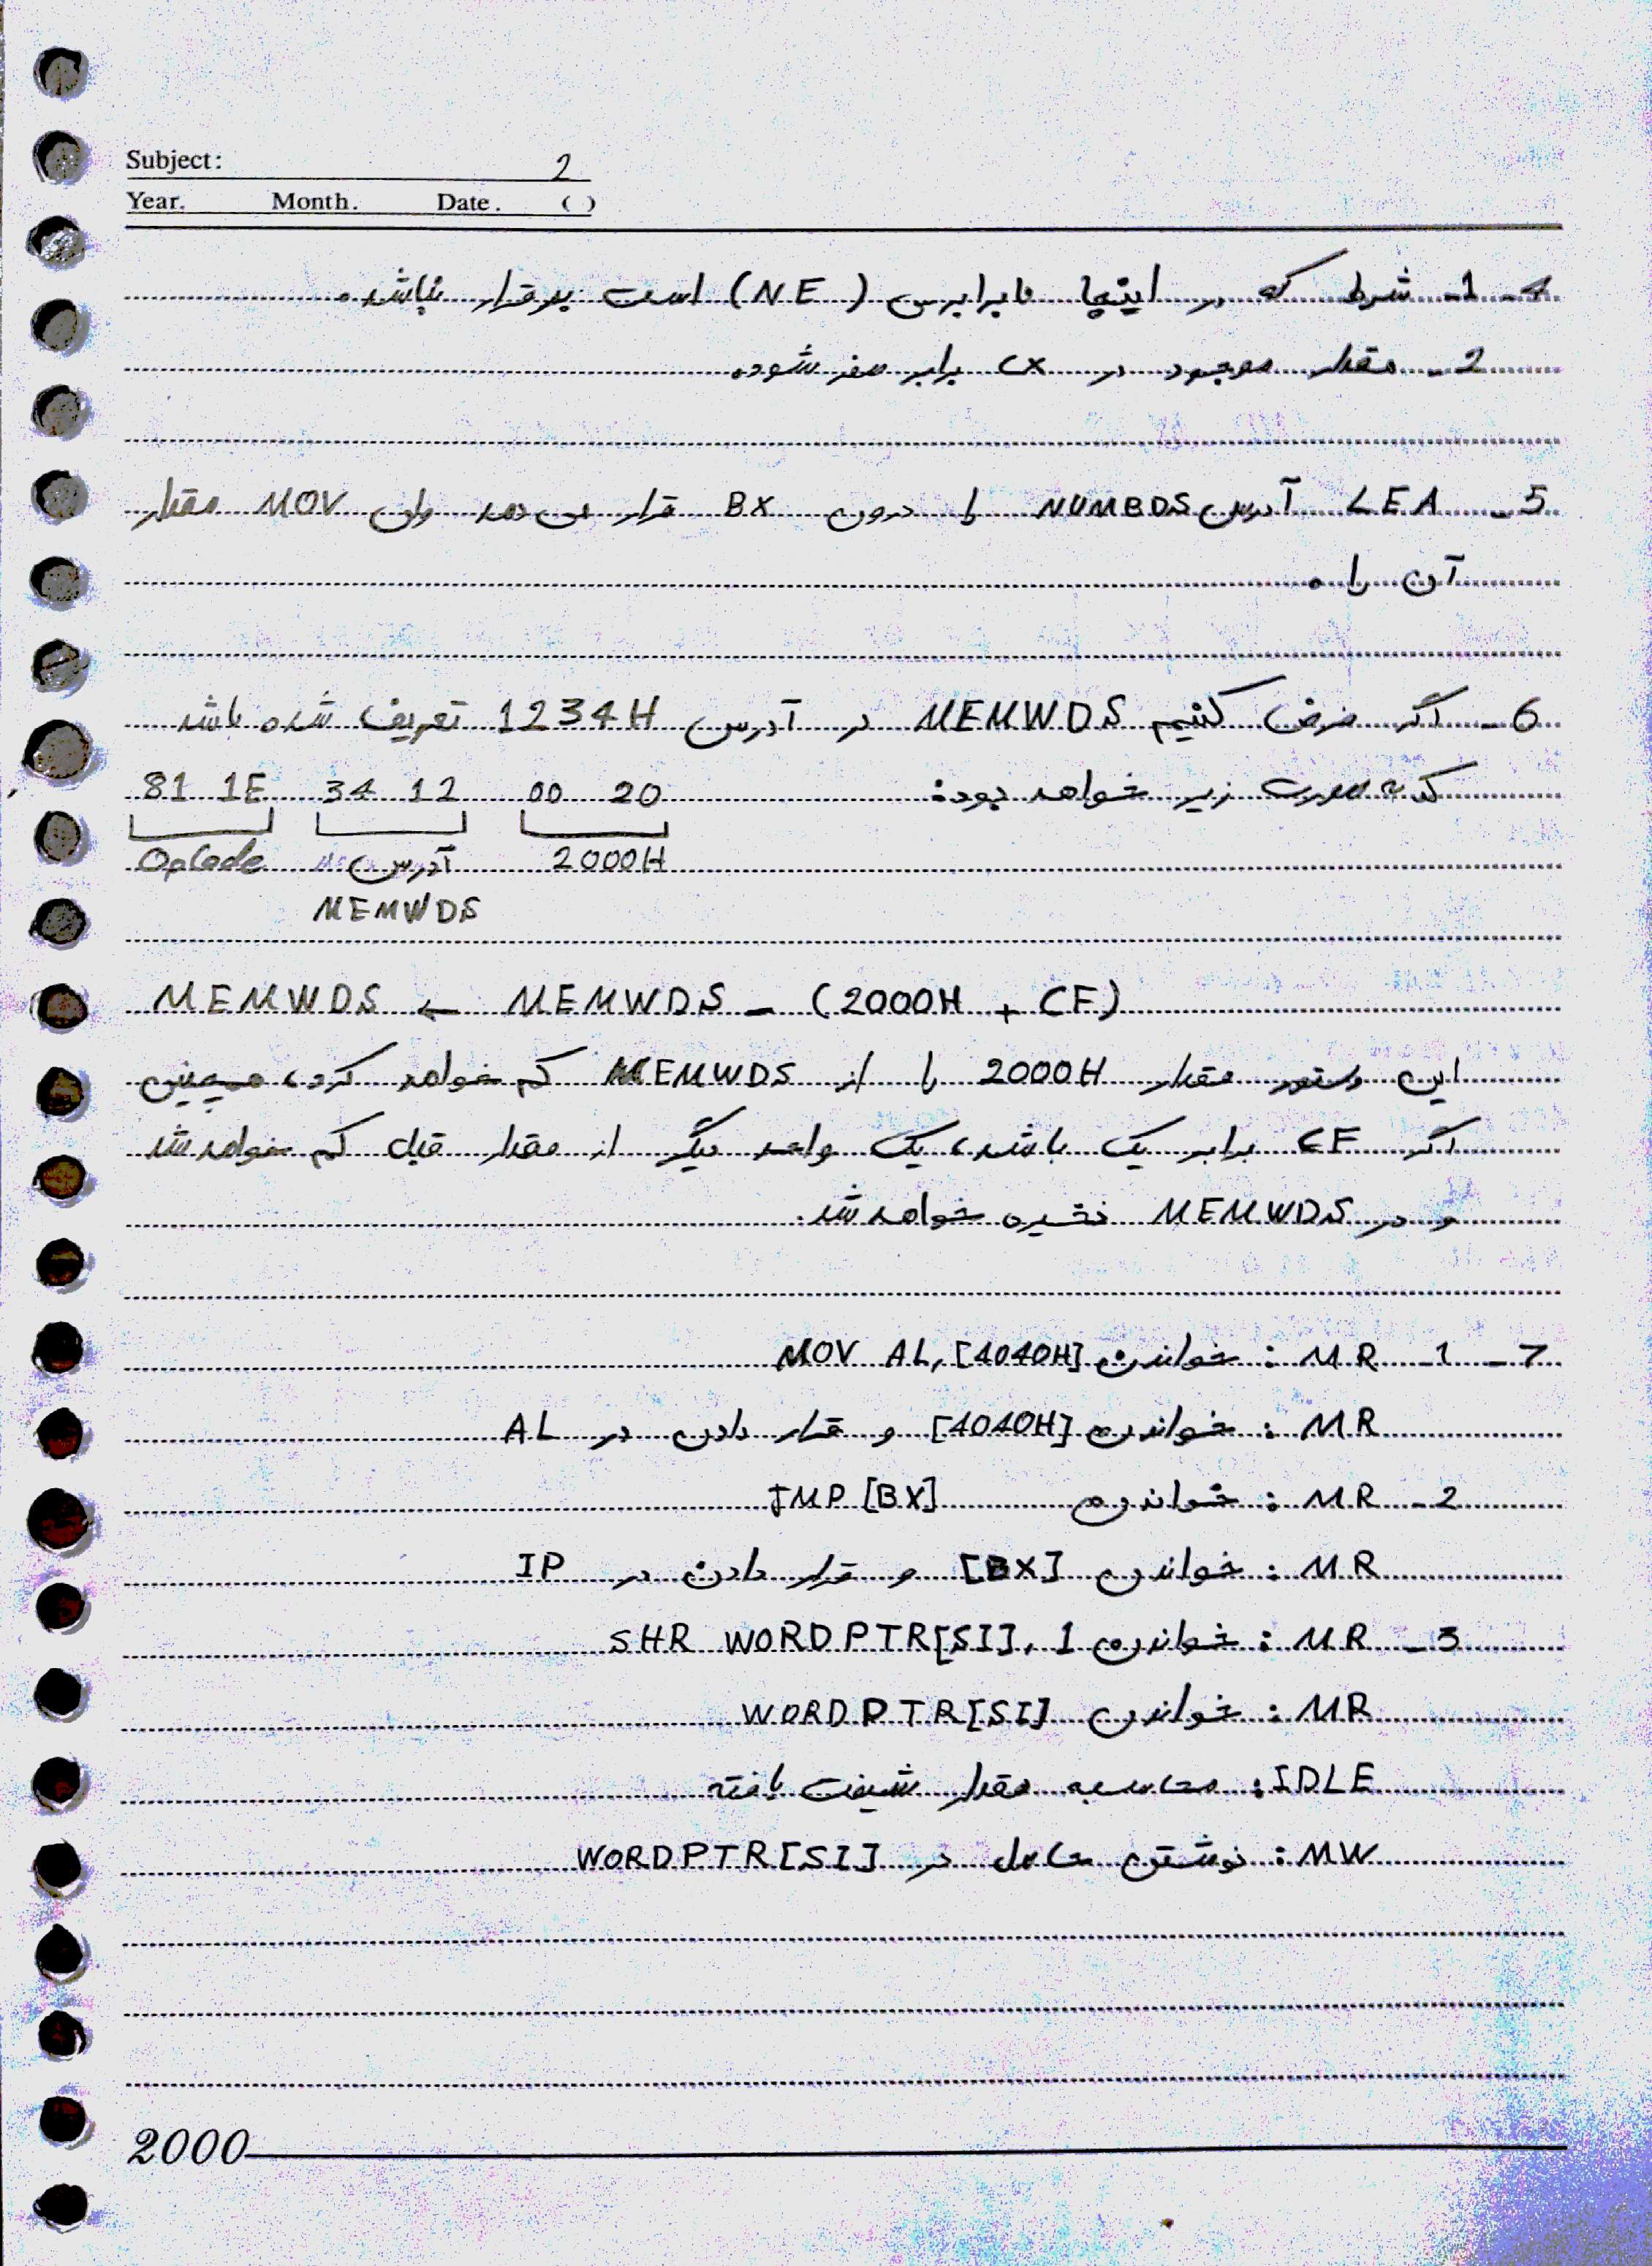 Subject: 2
Year. Month. Date. ( )
4_ 1_ شرط که در اینجا نابرابری (NE) است برقرار نباشد.
2_ مقدار موجود در CX برابر صفر شود.
5_ LEA آدرس NUMBDS را درون BX قرار می دهد ولی MOV مقدار
آن را.
6_ اگر فرض کنیم MEMWDS در آدرس 1234H تعریف شده باشد
کد به صورت زیر خواهد بود: 81 1E 34 12 00 20
Opcode آدرس 2000H
MEMWDS
MEMWDS ← MEMWDS - (2000H + CF)
این دستور مقدار 2000H را از MEMWDS کم خواهد کرد، همچنین
اگر CF برابر یک باشد، یک واحد دیگر از مقدار قبل کم خواهد شد
و در MEMWDS ذخیره خواهد شد.
7_ 1_ MR : خواندن MOV AL, [4040H]
MR : خواندن [4040H] و قرار دادن در AL
2_ MR : خواندن JMP [BX]
MR : خواندن [BX] و قرار دادن در IP
3_ MR : خواندن SHR WORDPTR[SI], 1
MR : خواندن WORDPTR[SI]
IDLE : محاسبه مقدار شیفت یافته
MW : نوشتن حاصل در WORDPTR[SI]
2000